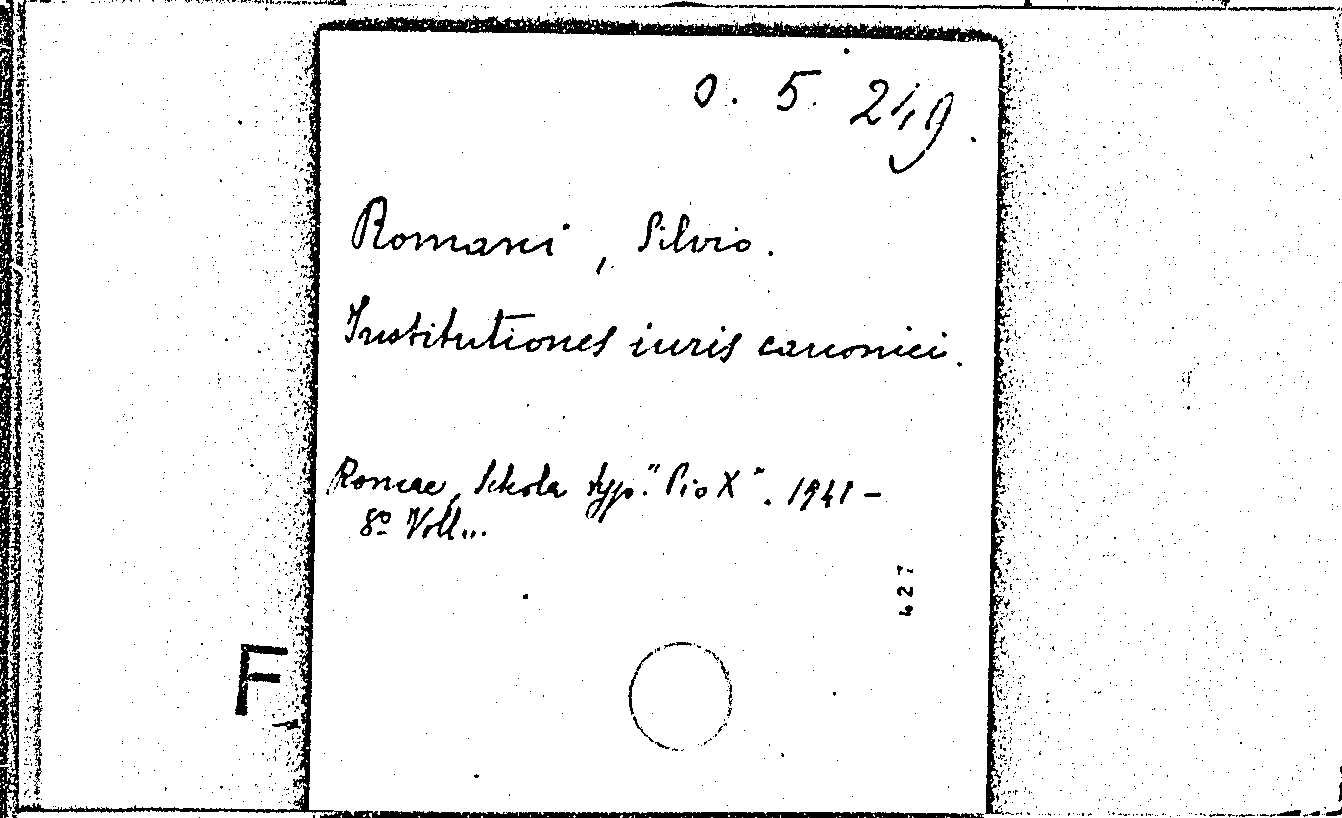 0. 5. 249.
Romani, Silvio.
Institutiones iuris canonici.
Romae, Schola typ. "Pio X". 1941 -
8º Voll...
427
F